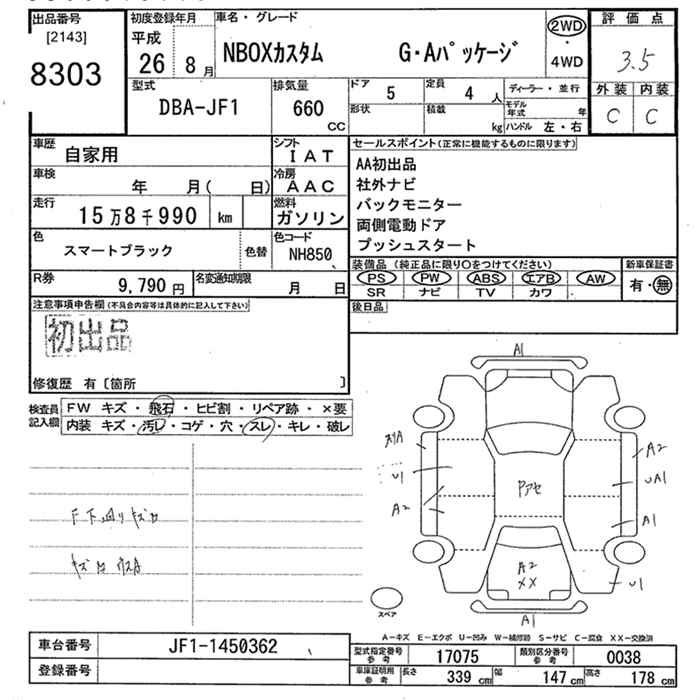 出品番号
[2143]
8303
初度登録年月
平成
26 8月
車名・グレード
NBOXカスタム G・Aパッケージ
2WD
・
4WD
評価点
3.5
外装 内装
C C
型式
DBA-JF1
排気量
660
CC
ドア 5
定員 4人
形状
積載 kg
ディーラー・並行
モデル年式 年
ハンドル 左・右
車歴
自家用
シフト
IAT
車検
年 月( 日)
冷房
AAC
走行
15万8千990 km
燃料
ガソリン
色
スマートブラック
色替
色コード
NH850
R券
9,790円
名変通知期限
月 日
セールスポイント(正常に機能するものに限ります)
AA初出品
社外ナビ
バックモニター
両側電動ドア
プッシュスタート
装備品 (純正品に限り○をつけてください)
PS PW ABS エアB AW
SR ナビ TV カワ
新車保証書
有・無
後日品
注意事項申告欄(不具合内容等は具体的に記入して下さい)
初出品
修復歴 有 [箇所 ]
検査員記入欄
FW キズ・飛石・ヒビ割・リペア跡・×要
内装 キズ・汚レ・コゲ・穴・スレ・キレ・破レ
A1
A2
U1
A2
UA1
A1
U1
Pアセ
A2
XX
A1
スペア
A−キズ E−エクボ U−凹み W−補修跡 S−サビ C−腐食 XX−交換済
車台番号
JF1-1450362
登録番号
型式指定番号
参考
17075
類別区分番号
参考
0038
車庫証明用
参考
長さ 339 cm
幅 147 cm
高さ 178 cm